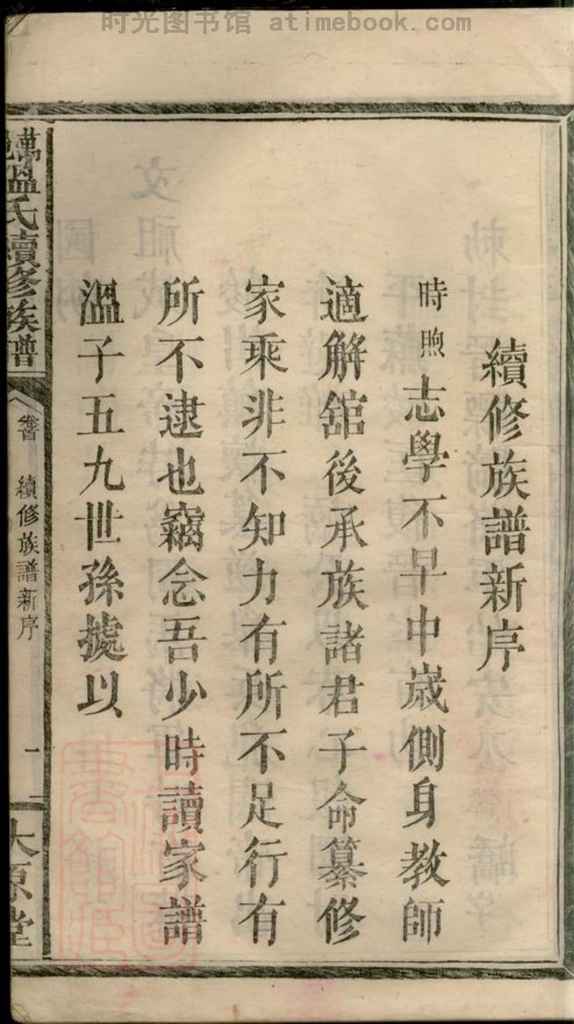 时光图书馆 atimebook.com
續修族譜新序
時煦志學不早中歲側身教師
適解舘後承族諸君子命纂修
家乘非不知力有所不足行有
所不逮也竊念吾少時讀家譜
溫子五九世孫據以
溫氏續修族譜
續修族譜新序
一
太原堂